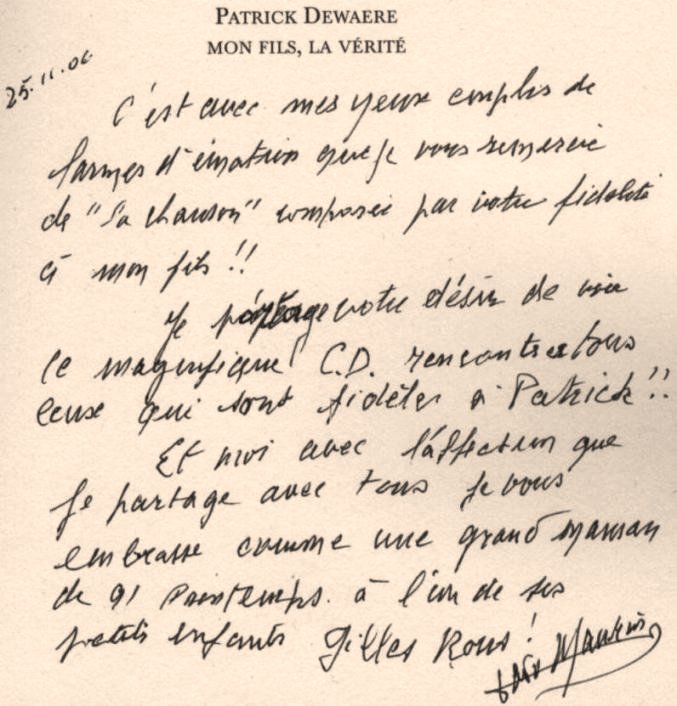 PATRICK DEWAERE
MON FILS, LA VÉRITÉ
25.11.06
C'est avec mes yeux emplis de
larmes d'émotion que je vous remercie
de "Sa chanson" composée par votre fidélité
à mon fils !!
Je partage votre désir de voir
ce magnifique C.D. rencontrer tous
ceux qui sont fidèles à Patrick !!
Et moi avec l'affection que
je partage avec tous je vous
embrasse comme une grand maman
de 91 Printemps à l'un de ses
petits enfants Gilles Rous !
Mado Maurin